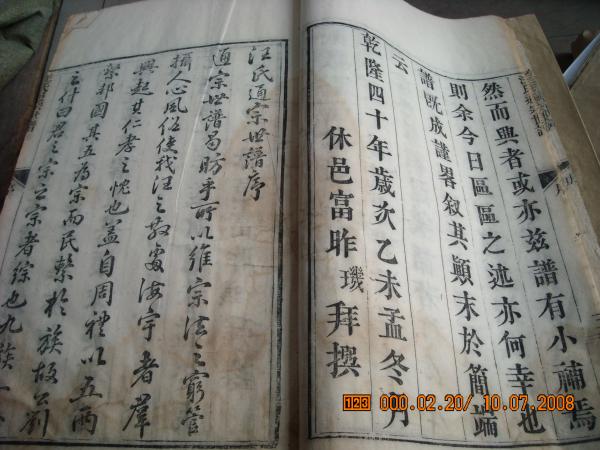 然而興者或亦茲譜有小補焉
則余今日區區之述亦何幸也
譜既成謹畧叙其顛末於簡端
云
乾隆四十年歲次乙未孟冬月
休邑富昨璣拜撰
汪氏通宗世譜序
通宗世譜曷昉乎所以維宗法之窮管
攝人心風俗使我汪之散處海宇者羣
興起其仁孝之愧也蓋自周禮以五兩
繫邦國其五為宗而民繫於族故公劉
之什曰君之宗之宗者綜也九族一
123 000.02.20/ 10.07.2008